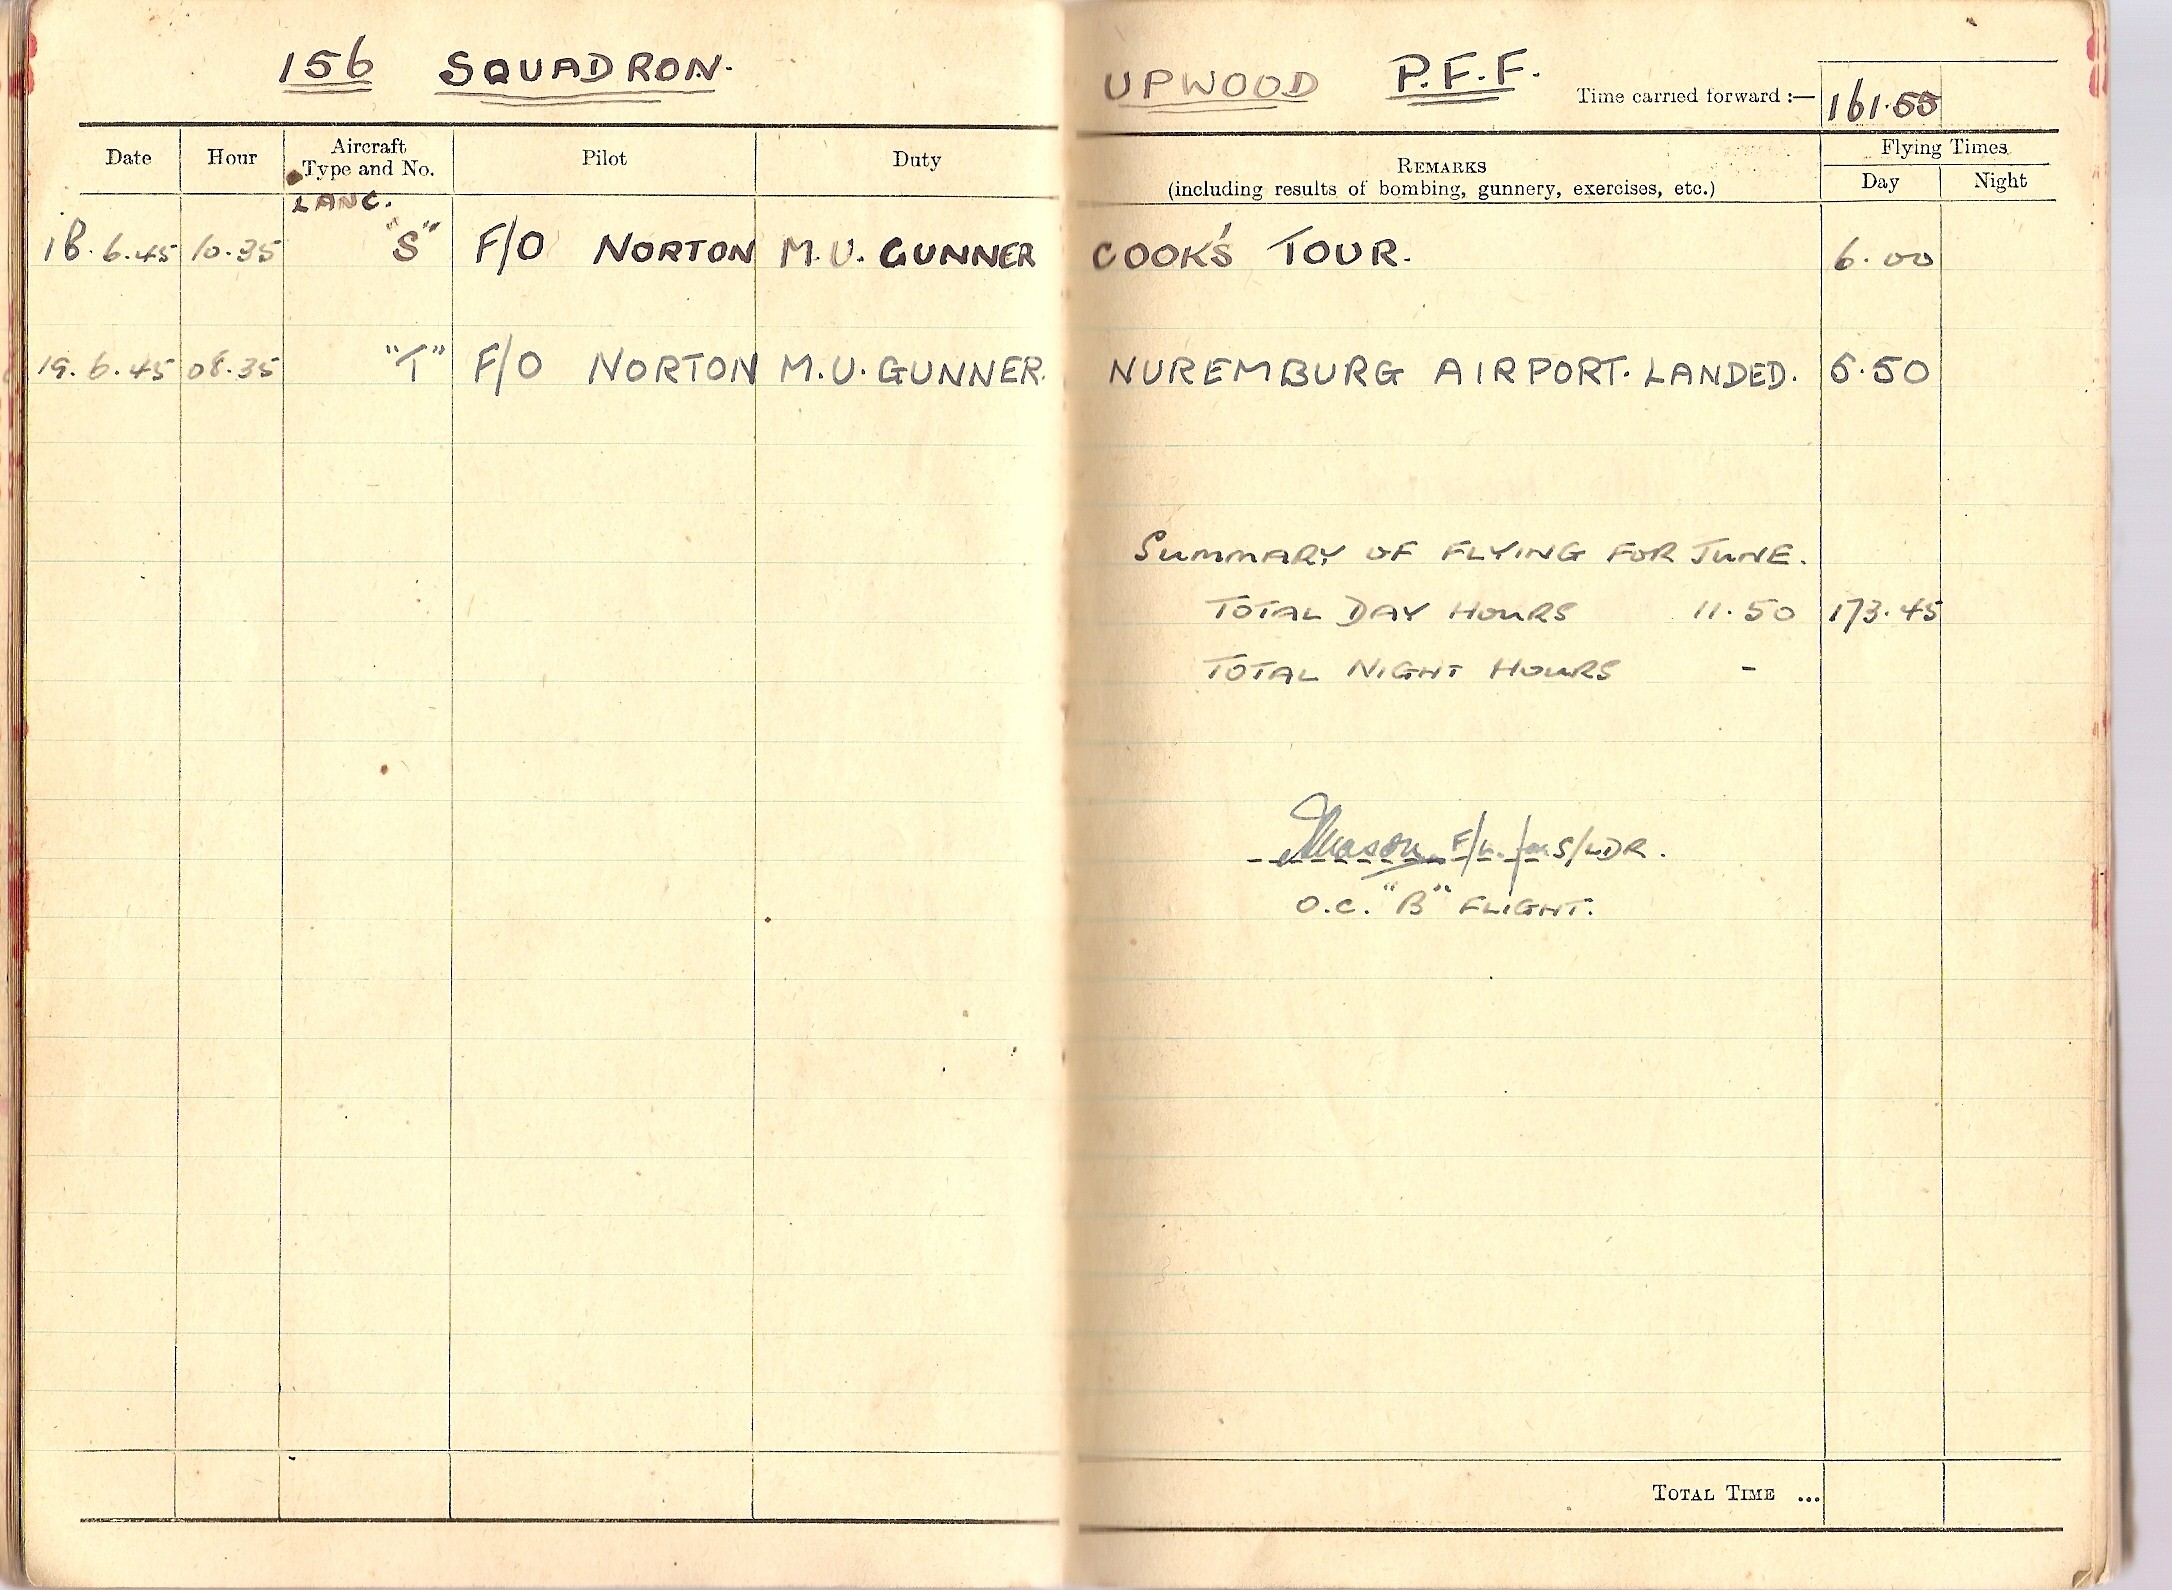 156 SQUADRON.
Date Hour Aircraft Type and No. Pilot Duty
LANC.
18.6.45 10.35 "S" F/O NORTON M.U. GUNNER
19.6.45 08.35 "T" F/O NORTON M.U. GUNNER.
UPWOOD P.F.F. Time carried forward :— 161.55
REMARKS
(including results of bombing, gunnery, exercises, etc.)
Flying Times
Day Night
COOK'S TOUR. 6.00
NUREMBURG AIRPORT. LANDED. 5.50
SUMMARY OF FLYING FOR JUNE.
TOTAL DAY HOURS 11.50 173.45
TOTAL NIGHT HOURS -
Mason F/L. for S/LDR.
O.C. "B" FLIGHT.
TOTAL TIME ...